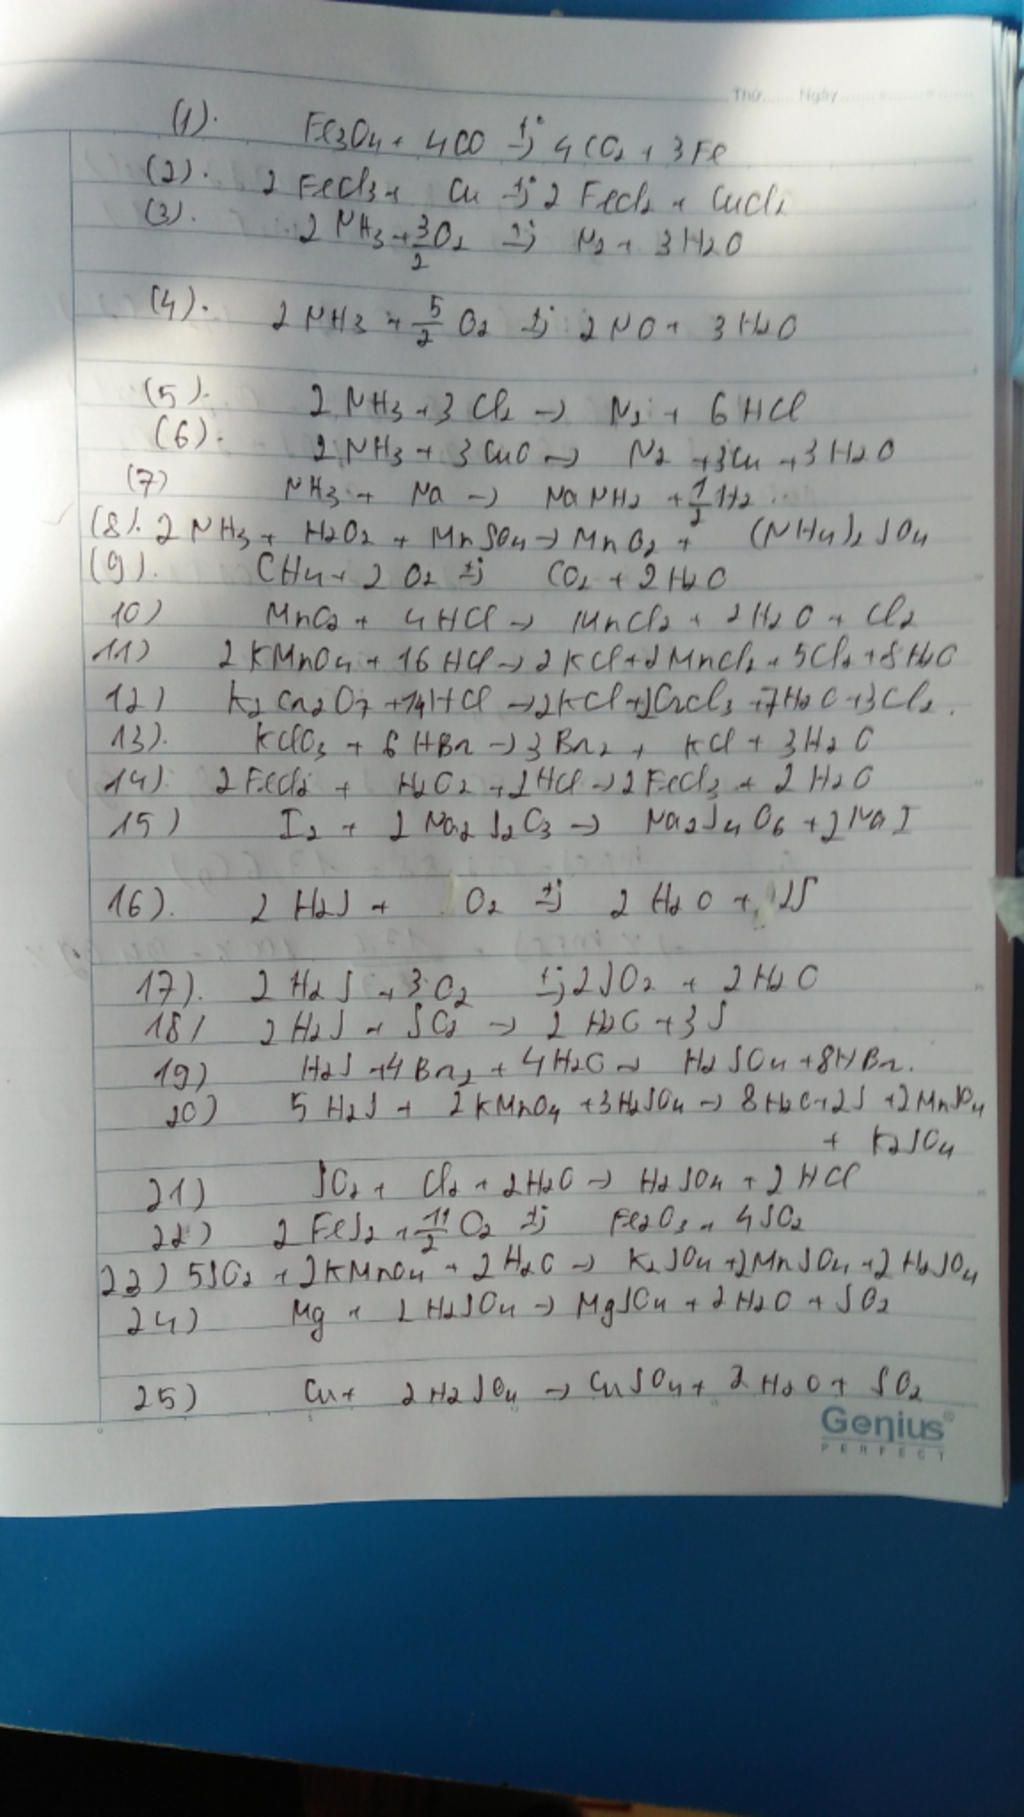 Thứ...... Ngày..................
(1). Fe3O4 + 4CO t°→ 4CO2 + 3Fe
(2). 2 FeCl3 + Cu t°→ 2 FeCl2 + CuCl2
(3). 2 NH3 + 3/2 O2 t°→ N2 + 3H2O
(4). 2 NH3 + 5/2 O2 t°→ 2NO + 3H2O
(5). 2NH3 + 3Cl2 → N2 + 6HCl
(6). 2NH3 + 3CuO → N2 + 3Cu + 3H2O
(7) NH3 + Na → NaNH2 + 1/2 H2
(8). 2NH3 + H2O2 + MnSO4 → MnO2 + (NH4)2SO4
(9). CH4 + 2O2 t°→ CO2 + 2H2O
10) MnO2 + 4HCl → MnCl2 + 2H2O + Cl2
11) 2KMnO4 + 16HCl → 2KCl + 2MnCl2 + 5Cl2 + 8H2O
12) K2Cr2O7 + 14HCl → 2KCl + 2CrCl3 + 7H2O + 3Cl2.
13). KClO3 + 6HBr → 3Br2 + KCl + 3H2O
14). 2FeCl2 + H2O2 + 2HCl → 2FeCl3 + 2H2O
15) I2 + 2Na2S2O3 → Na2S4O6 + 2NaI
16). 2H2S + O2 t°→ 2H2O + 2S
17). 2H2S + 3O2 t°→ 2SO2 + 2H2O
18) 2H2S + SO2 → 2H2O + 3S
19) H2S + 4Br2 + 4H2O → H2SO4 + 8HBr.
20) 5H2S + 2KMnO4 + 3H2SO4 → 8H2O + 2S + 2MnSO4
+ K2SO4
21) SO2 + Cl2 + 2H2O → H2SO4 + 2HCl
22) 2FeS2 + 11/2 O2 t°→ Fe2O3 + 4SO2
22) 5SO2 + 2KMnO4 + 2H2O → K2SO4 + 2MnSO4 + 2H2SO4
24) Mg + 2H2SO4 → MgSO4 + 2H2O + SO2
25) Cu + 2H2SO4 → CuSO4 + 2H2O + SO2
Genius®
PERFECT